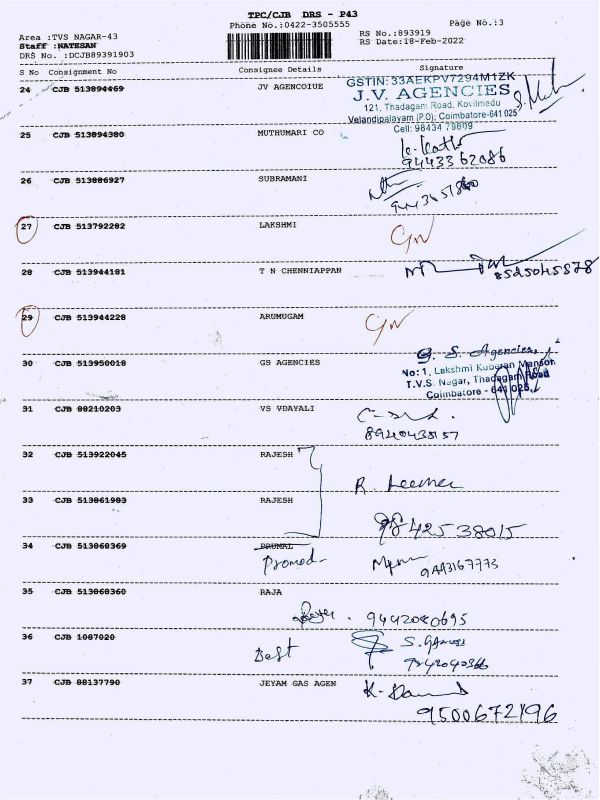 TPC/CJB DRS - P43
Phone No.:0422-3505555 Page No.:3
Area :TVS NAGAR-43 RS No.:893919
Staff :NATESAN RS Date:18-Feb-2022
DRS No. :DCJB89391903
S No Consignment No Consignee Details Signature
24 CJB 513894469 JV AGENCOIUE
GSTIN: 33AEKPV7294M1ZK
J.V. AGENCIES
121, Thadagam Road, Kovilmedu
Velandipalayam (P.O), Coimbatore-641 025
Cell: 98434 79609
25 CJB 513894380 MUTHUMARI CO
9443362086
26 CJB 513886927 SUBRAMANI
27 CJB 513792282 LAKSHMI
28 CJB 513944181 T N CHENNIAPPAN
8525045578
29 CJB 513944228 ARUMUGAM
30 CJB 513950018 GS AGENCIES
G. S. Agencies,
No: 1, Lakshmi Kuberan Mansion
T.V.S. Nagar, Thadagam Road
Coimbatore - 641 025.
31 CJB 88210203 VS VDAYALI
32 CJB 513922045 RAJESH
33 CJB 513861983 RAJESH
9842538015
34 CJB 513868369 BRUMAL
9443167773
35 CJB 513868360 RAJA
9442080695
36 CJB 1087020
37 CJB 88137790 JEYAM GAS AGEN
9500672196